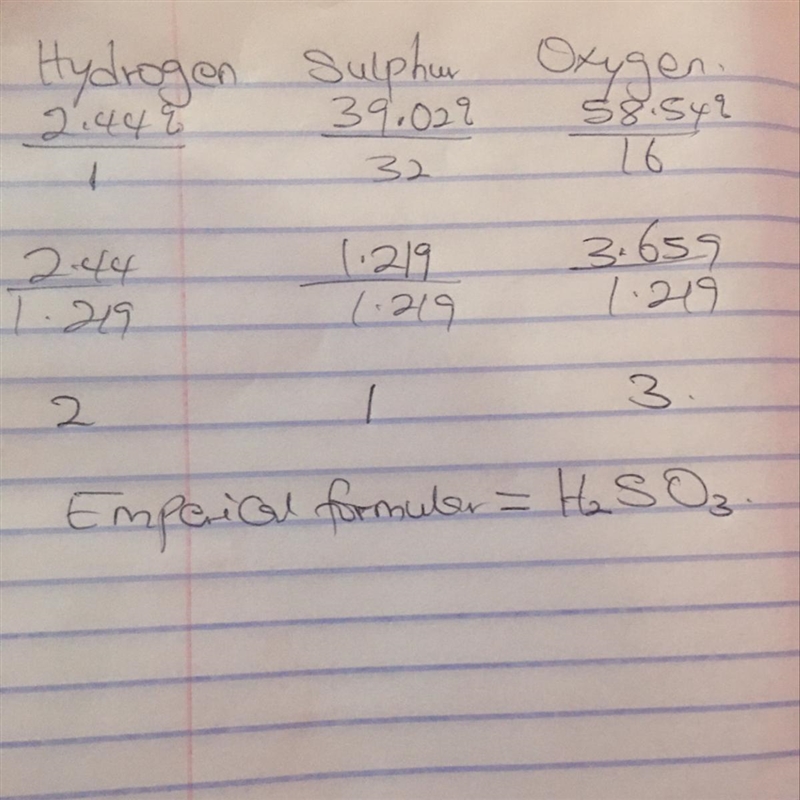 Hydrogen Sulphur Oxygen.
2.442 39.022 58.542
1 32 16
2.44 1.219 3.659
1.219 1.219 1.219
2 1 3.
Emperical formular = H₂SO₃.